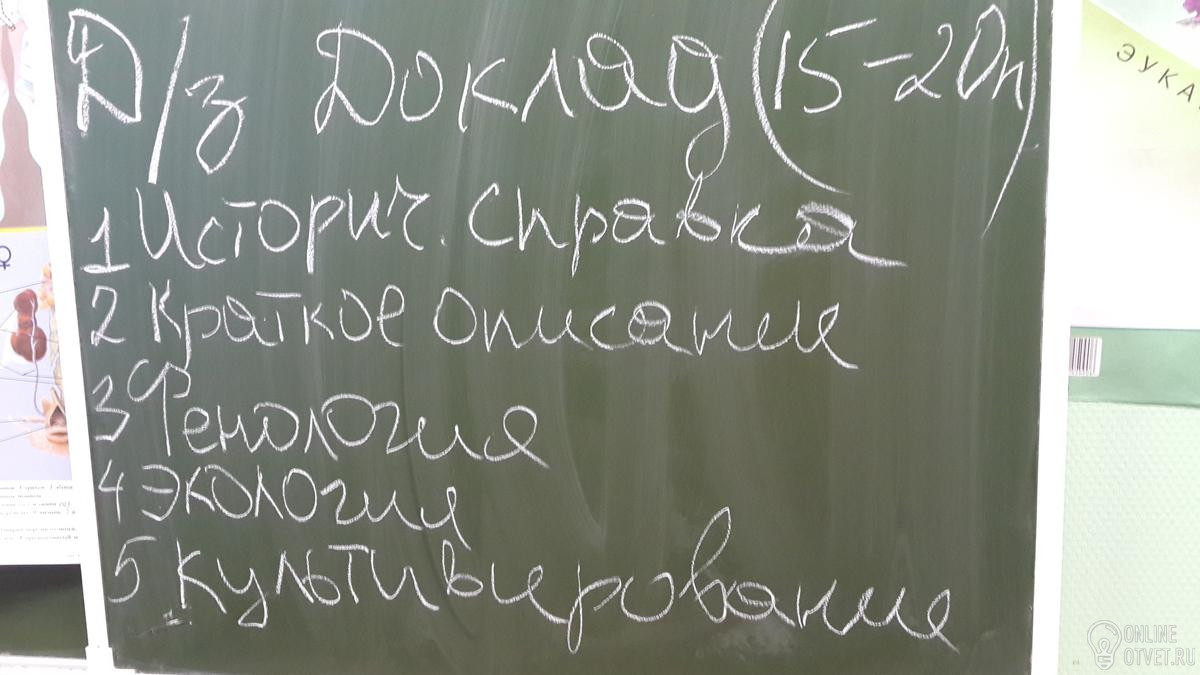 Д/з Доклад (15-20п)
1 Историч. справка
2 Краткое описание
3 Фенология
4 Экология
5 Культивирование
ЭУКА
ONLINE
OTVET.RU